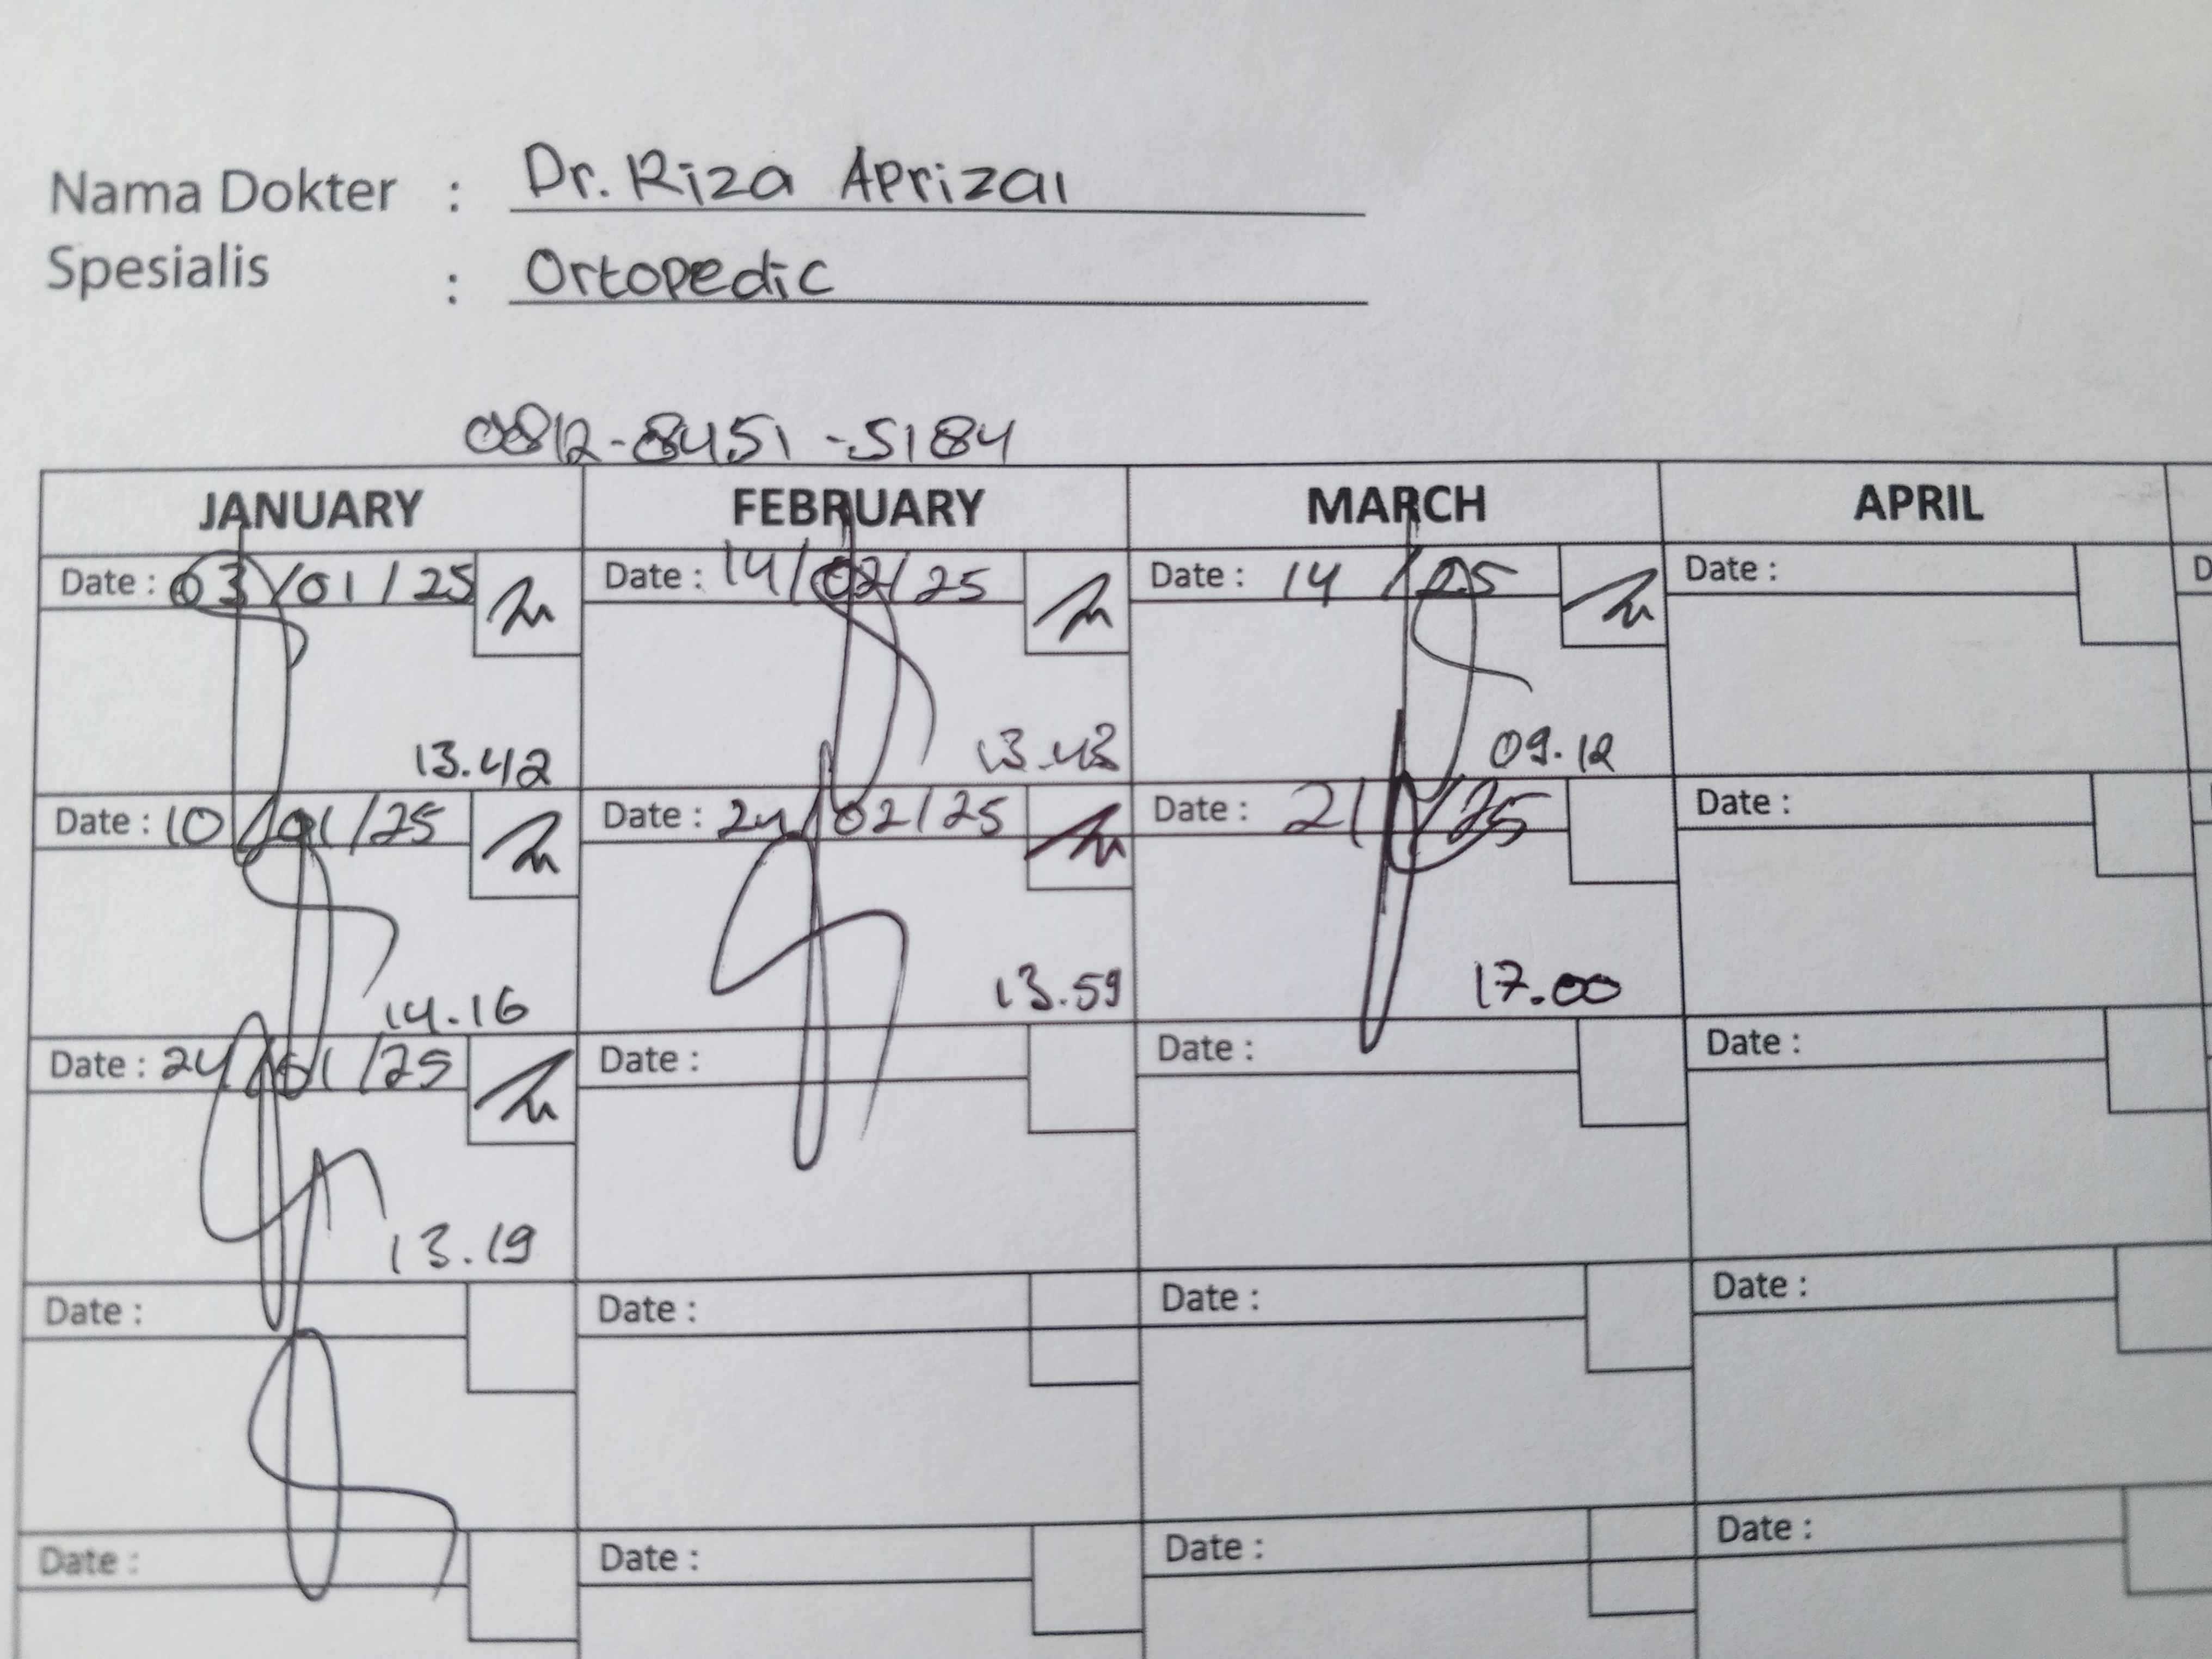 Nama Dokter : Dr. Riza Aprizal
Spesialis : Ortopedic
0812-8451-5184
JANUARY FEBRUARY MARCH APRIL
Date : 03/01/25 Date : 14/02/25 Date : 14 /25 Date :
13.42 13.43 09.12
Date : 10/01/25 Date : 24/02/25 Date : 21/25 Date :
14.16 13.59 17.00
Date : 24/01/25 Date : Date : Date :
13.19
Date : Date : Date : Date :
Date : Date : Date : Date :